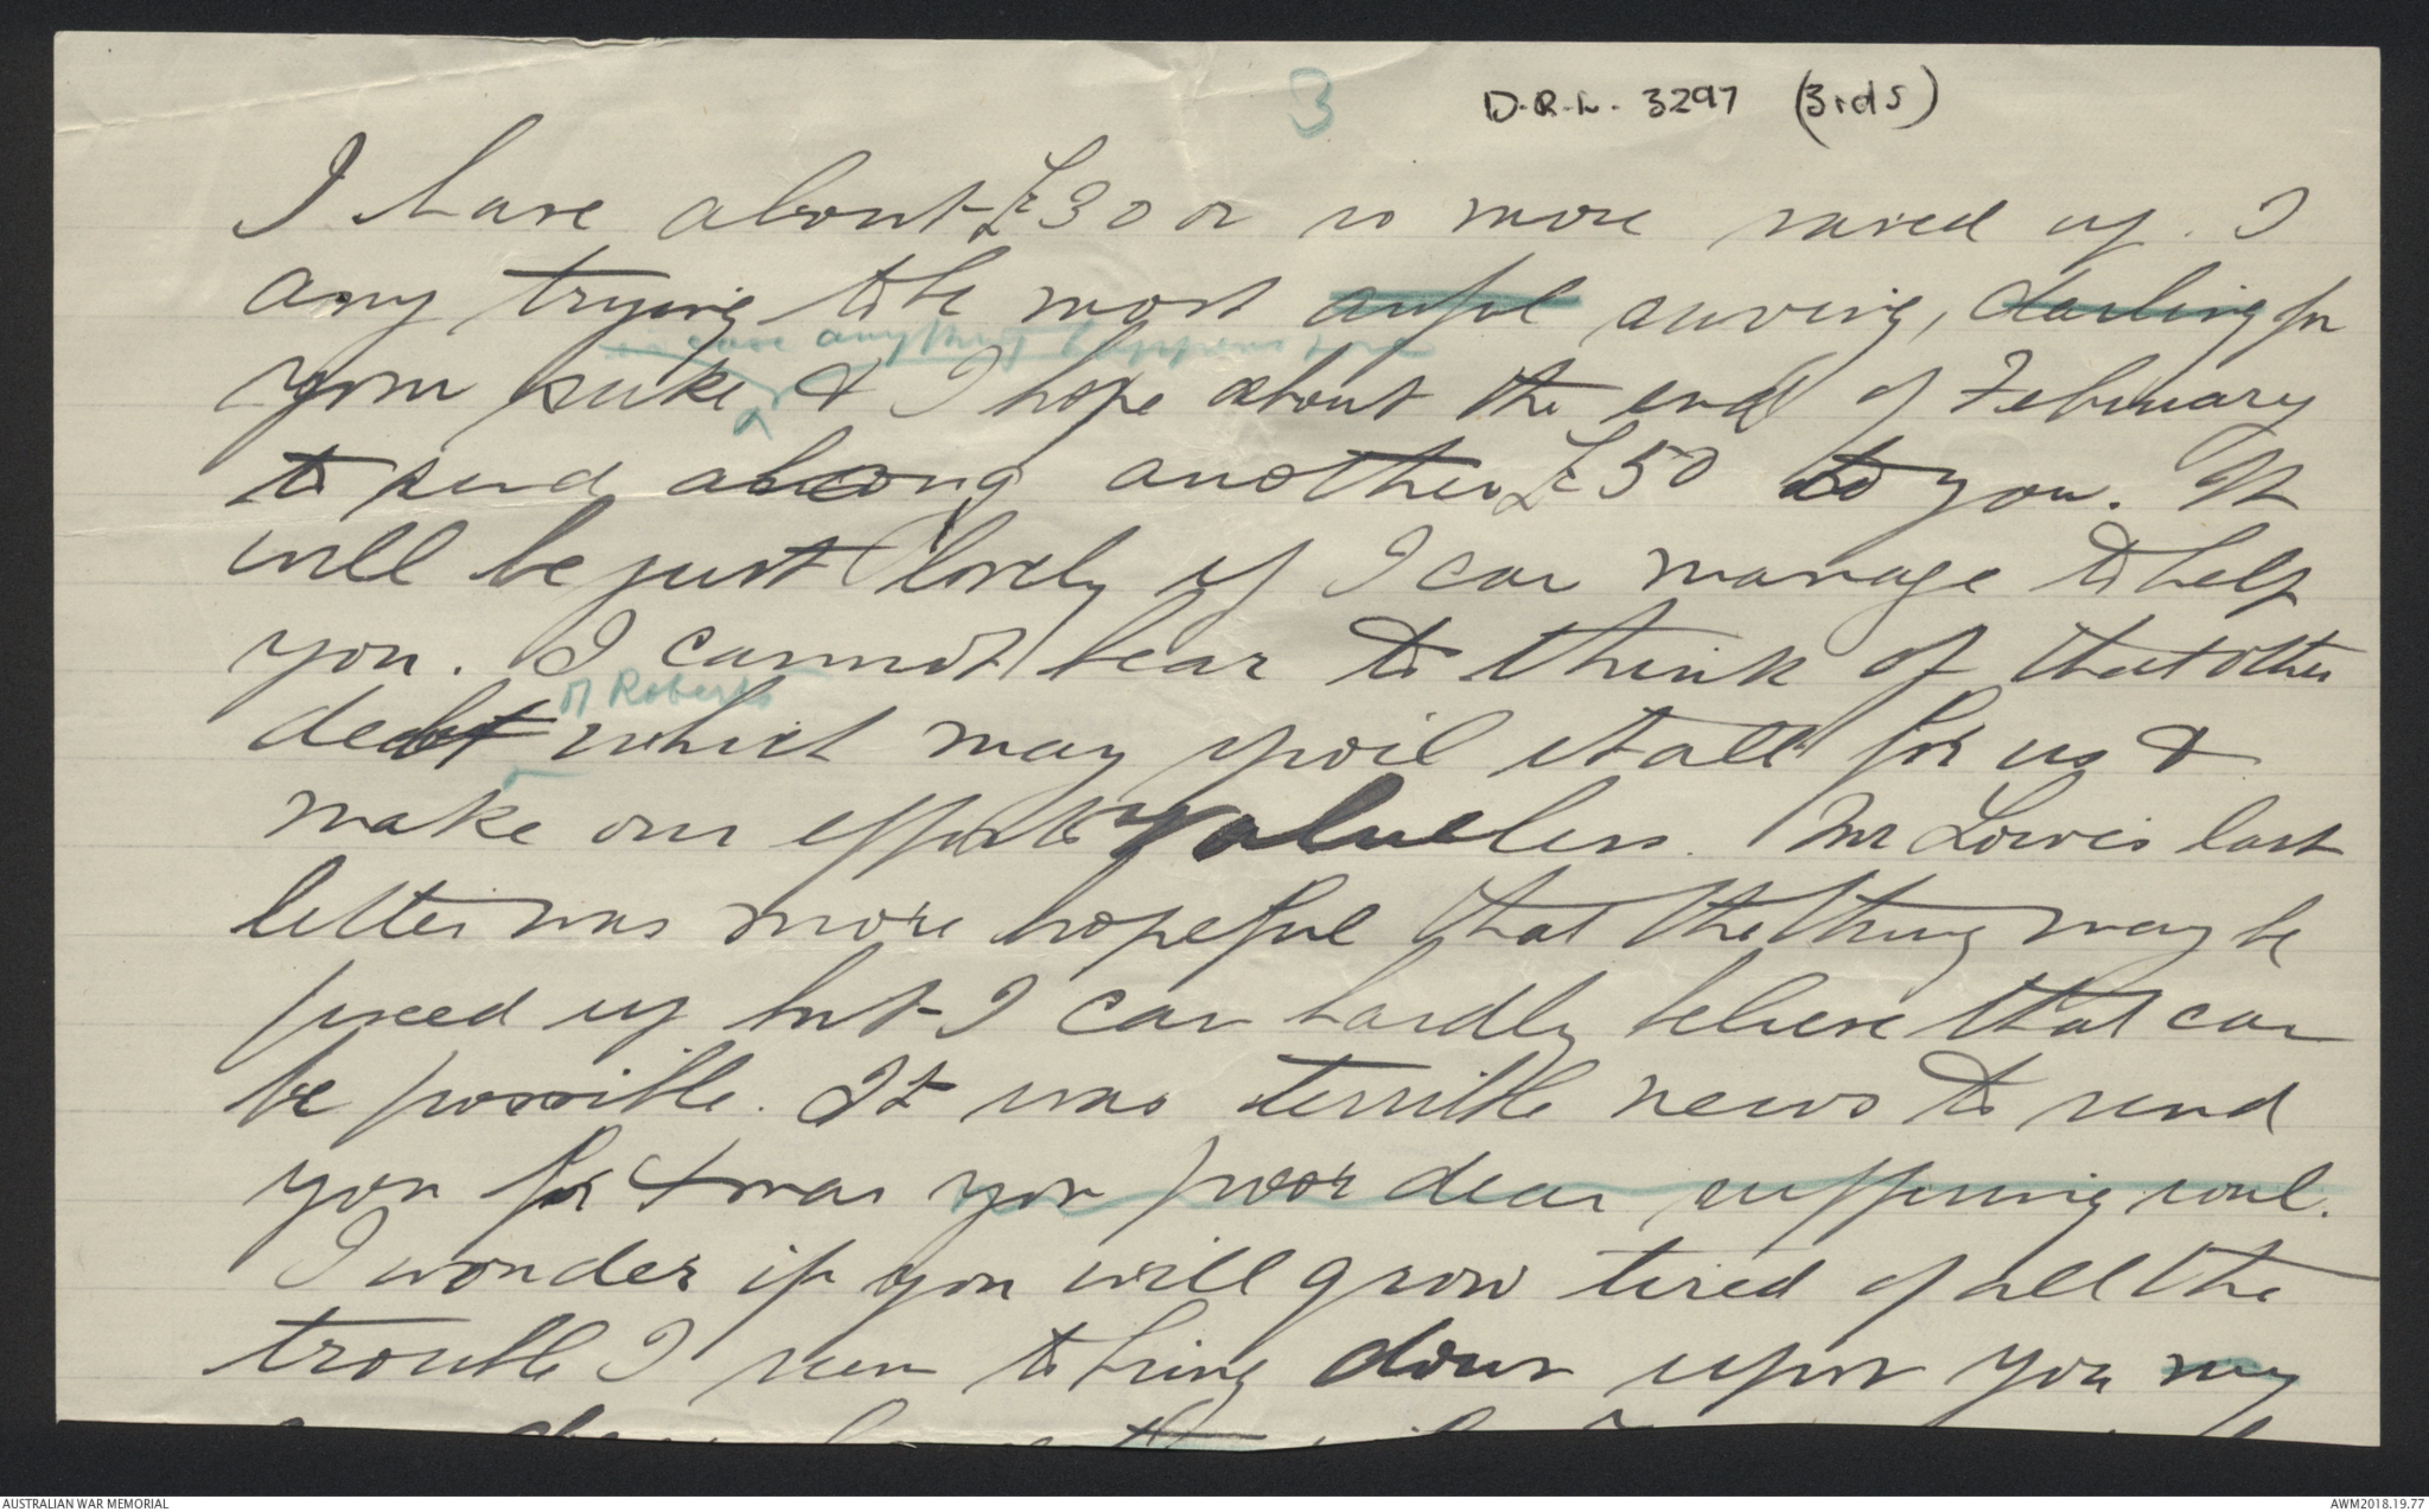 3
D.R.L. 3297 (3rd s)
I have about £30 or so more saved up. I
am trying to be most awful saving, darling for
in case anything happens me
your sake & I hope about the end of February
to send along another £50 to you. It
will be just lovely if I can manage to help
you. I cannot bear to think of that other
of Roberts
debt which may spoil it all for us &
make our efforts valueless. Mr Lowis last
letter was more hopeful that the thing may be
fixed up but I can hardly believe that can
be possible. It was terrible news to send
you for Xmas you poor dear suffering soul.
I wonder if you will grow tired of all the
trouble I seem to bring down upon you my
AUSTRALIAN WAR MEMORIAL
AWM2018.19.77